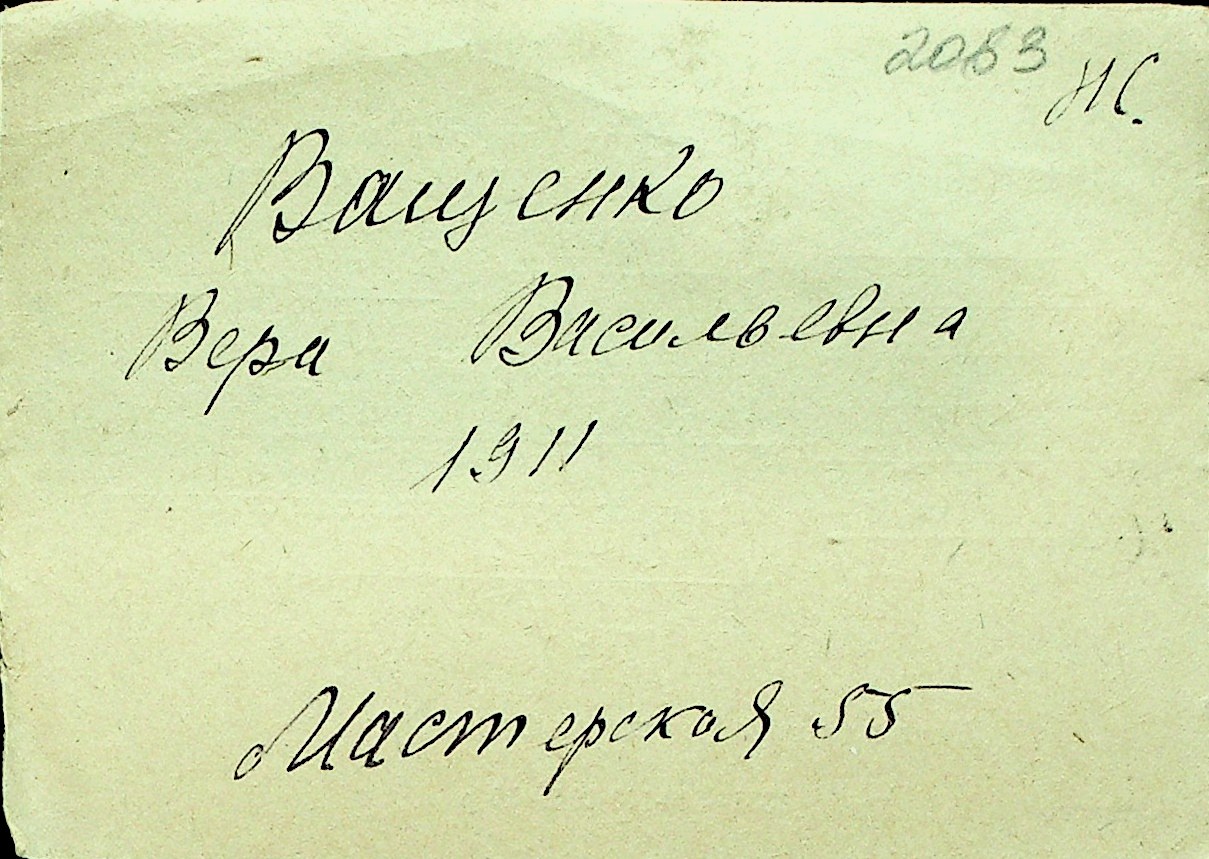 2063
НС.
Ващенко
Вера Васильевна
1911
Мастерская 55